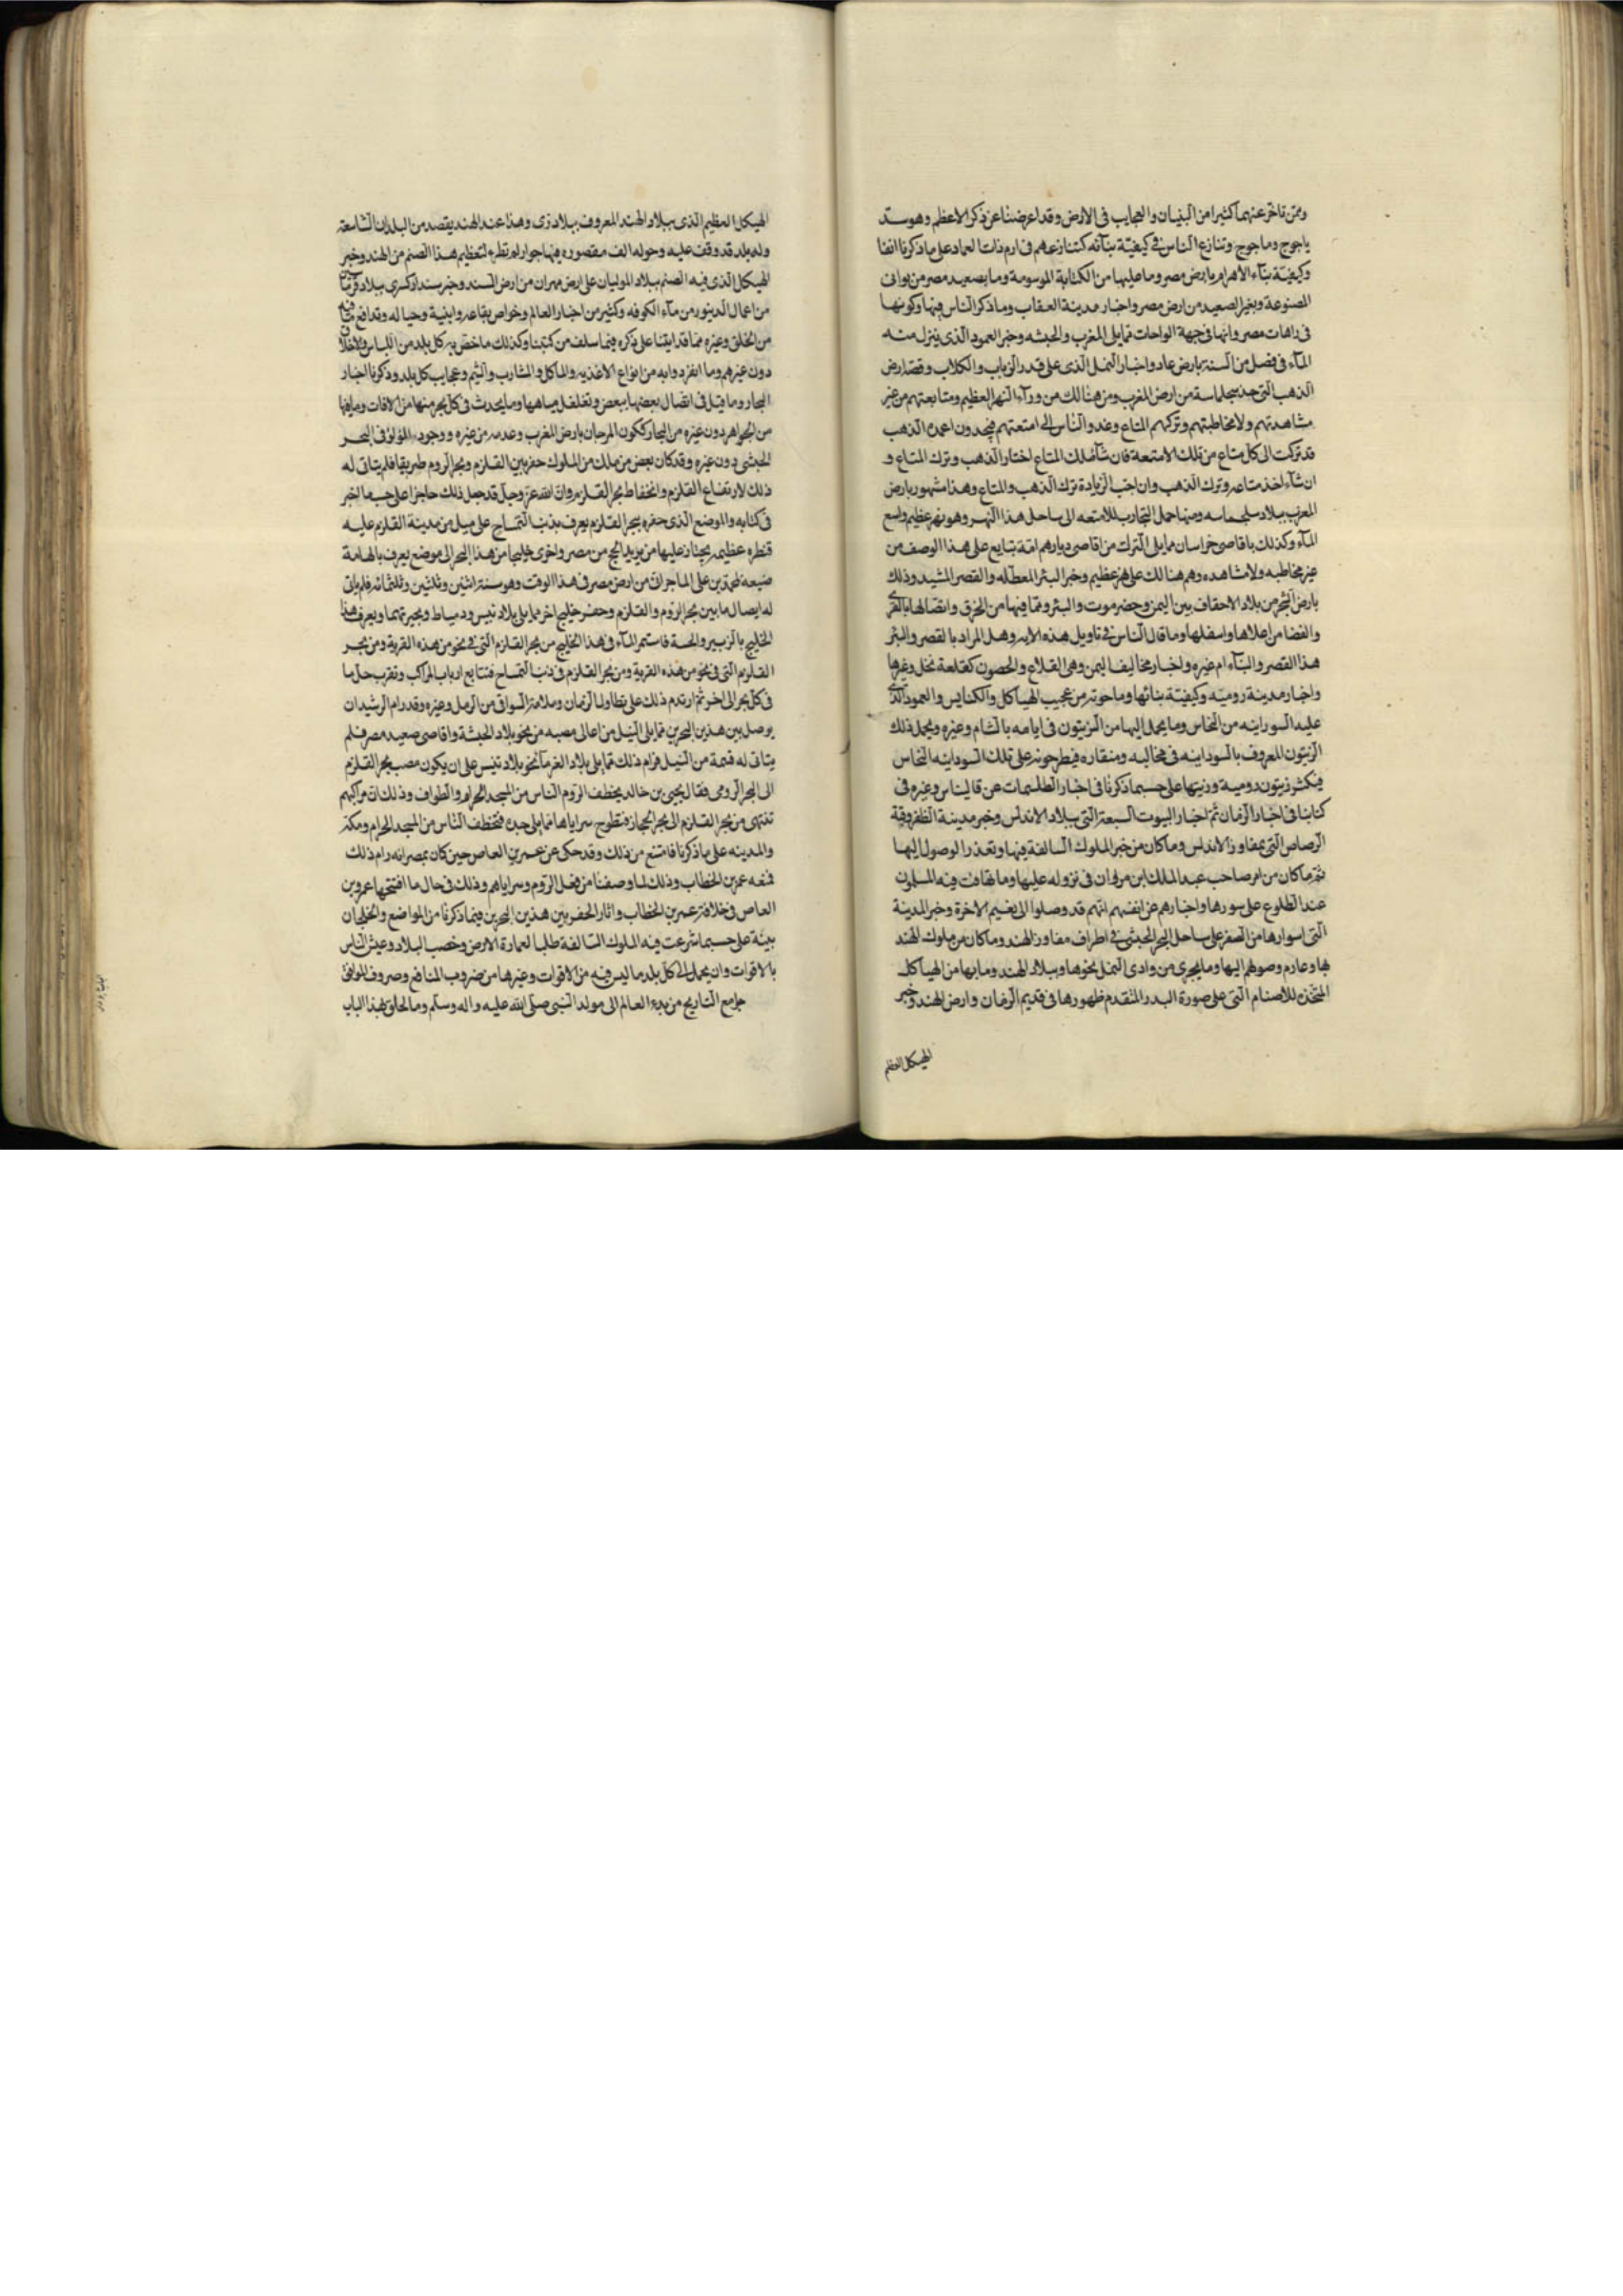 وممن تاخر عنهما كثيرا من البنيان والعجايب فى الارض وقد اعرضنا عن ذكر الاعظم وهو سد
ياجوج وماجوج وتنازع الناس فى كيفية بنائه كتنازعهم فى ارم ذات العماد على ما ذكرنا انفا
وكيفية بناء الاهرام بارض مصر وما عليها من الكتابة الموسومة وما بصعيد مصر من
المصنوعة وبغير الصعيد من ارض مصر واخبار مدينة العقاب وما ذكر الناس فيها وكونها
فى مصر وانها فى جهة الواحات مما يلى المغرب والحبشه وخبر العمود الذى ينزل منه
الماء فى فصل من السنة بارض عاد واخبار النمل الذى على قدر الزباب والكلاب وقصة ارض
الذهب التى سجلماسة من ارض المغرب ومن هنالك من ورآء النهر العظيم ومتابعتهم من غير
مشاهدتهم ولا مخاطبتهم وتركهم المتاع وغدو الناس الى امتعتهم فيجدون اعمدة الذهب
قد تركت الى كل متاع من تلك الامتعة فان شآء ملك المتاع اختار الذهب وترك المتاع و
ان شآء اخذ متاعه وترك الذهب وان احب الزيادة ترك الذهب والمتاع وهذا مشهور بارض
المغرب ببلاد سلجماسه ومنها حمل التجار للامتعه الى ساحل هذا النهر وهو نهر عظيم واسع
المآء وكذلك باقاصى خراسان مما يلى الترك من اقاصى ديارهم امة تبايع على هذا الوصف من
غير مخاطبه ولا مشاهده وهم هنالك على نهر عظيم وخبر البئر المعطله والقصر المشيد وذلك
بارض الشحر من بلاد الاحقاف بين اليمن وحضرموت والبئر وما فيها من الخرق واتصالها بالقرى
والفضا من اعلاها واسفلها وما قال الناس فى تاويل هذه الايه وهل المراد بالقصر والبئر
هذا القصر والبنآء ام غيره واخبار مخاليف اليمن وهى القلاع والحصون كقلعة نحل وغيرها
واخبار مدينة روميه وكيفية بنائها وما حوته من عجيب الهياكل والكنايس والعمود الذى
عليه السورانيه من النحاس وما يحمل اليها من الزيتون فى ايامه بالشام وغيره ويحمل ذلك
الزيتون المعروف بالسودانيه فى مخاليبه ومنقاره فيطرحونه على تلك السودانيه النحاس
فيكثر زيتون روميه وزيتها على حسبما ذكرنا فى اخبار الطلسمات عن قاليناس وغيره فى
كتابنا فى اخبار الزمان ثم اخبار البيوت السبعة التى ببلاد الاندلس وخبر مدينة الظفر وقبة
الرصاص التى بمفاوز الاندلس وما كان من خبر الملوك السالفة فيها وتعذر الوصول اليها
ثم ما كان من امر صاحب عبد الملك ابن مروان فى نزوله عليها وما تهافت فيه المسلمون
عند الطلوع على سورها واخبارهم عن انفسهم انهم قد وصلوا الى نعيم الاخرة وخبر المدينة
التى اسوارها من الصفر على ساحل البحر الحبشى فى اطراف مفاوز الهند وما كان من ملوك الهند
بها وعدم وصولهم اليها وما يجرى من وادى النمل نحوها وببلاد الهند وما بها من الهياكل
المتخذة للاصنام التى على صورة البدر المتقدم ظهورها فى قديم الزمان وارض الهند وخبر
الهيكل العظيم
الهيكل العظيم الذى ببلاد الهند المعروف ببلادرى وهذا عند الهند يقصد من البلدان الشاسعة
وله بلد قد وقف عليه وحوله الف مقصوره فيها جوار لتعظيم هذا الصنم من الهند وخبر
الهيكل الذى فيه الصنم ببلاد الموليان على ارض مهران من ارض السند وخبر سندان كسرى ببلاد قرماسين
من اعمال الدينور من مآء الكوفه وكثير من اخبار العالم وخواص بقاعه وابنية وجباله وقد
من الخلق وغيره مما قد اتينا على ذكره فيما سلف من كتبنا وكذلك ما خص به كل بلد من اللباس والاخلاق
دون غيرهم وما انفردوا به من انواع الاغذيه والمآكل والمشارب والشيم وعجايب كل بلد وذكرنا اخبار
البحار وما قيل فى اتصال بعضها ببعض وتغلغل مياهها وما يحدث فى كل بحر منها من الافات وما فيها
من الجواهر دون غيره من البحار ككون المرجان بارض المغرب وعدمه من غيره ووجود اللؤلؤ فى البحر
الحبشى دون غيره وقد كان بعض من ملك من الملوك حفر بين القلزم وبحر الروم طريقا فلم يتاتى له
ذلك لارتفاع القلزم وانخفاظ بحر القلزم وان الله عز وجل قد جعل ذلك حاجزا على حسب ما اخبر
فى كتابه والموضع الذى حفره ببحر القلزم يعرف بذنب التمساح على ميل من مدينة القلزم عليه
قنطرة عظيمه يجتاز عليها من يريد الحج من مصر واجرى خليجا من هذا البحر الى موضع يعرف بالهامة
ضيعه لمحمد بن على الماجرانى من ارض مصر فى هذا الوقت وهو سنة اثنتين وثلثين وثلثمائه فلم ياتى
له ايصال ما بين بحر الروم والقلزم وحفر خليج اخر مما يلى بلاد تنيس ودمياط وبحيرتها ويعرف هذا
الخليج بالزبير والحسة فاستمر المآء فى هذا الخليج من بحر القلزم التى فى نحو من هذه القرية ومن بحر
القلزم التى فى نحو من هذه القرية ومن بحر القلزم فى ذنب التمساح فتتابع ارباب المراكب وتقرب حمل ما
فى كل بحر الى اخر ثم ارتدم ذلك على تطاول الزمان وملامته السوافى من الرمل وغيره وقد رام الرشيد ان
يوصل بين هذين البحرين مما يلى النيل من اعالى مصبه من نحو بلاد الحبشة واقاصى صعيد مصر فلم
يتاتى له قسمة من النيل فرام ذلك مما يلى بلاد الفرمآ نحو بلاد تنيس على ان يكون مصب بحر القلزم
الى البحر الرومى فقال يحيى بن خالد يخطف الروم الناس من المسجد الحرام والطواف وذلك ان مراكبهم
تنتهى من بحر القلزم الى بحر الحجاز فتطرح سراياها مما يلى جده فتخطف الناس من المسجد الحرام ومكه
والمدينه على ما ذكرنا فامتنع من ذلك وقد حكى عن عمرو بن العاص حين كان بمصر انه رام ذلك
فمنعه عمر بن الخطاب وذلك لما وصفنا من فعل الروم وسراياهم وذلك فى حال ما افتتحها عمرو بن
العاص فى خلافة عمر بن الخطاب واثار الحفر بين هذين البحرين فيما ذكرنا من المواضع والخلجان
بينة على حسبما شرعت فيه الملوك السالفة طلبا لعمارة الارض وخصب البلاد وعيش الناس
بالاقوات وان يحمل الى كل بلد ما ليس فيه من الاقوات وغيرها من ضروب المنافع وصروف المرافق
جامع التاريخ من بدء العالم الى مولد النبى صلى الله عليه واله وسلم وما لحق بهذا الباب